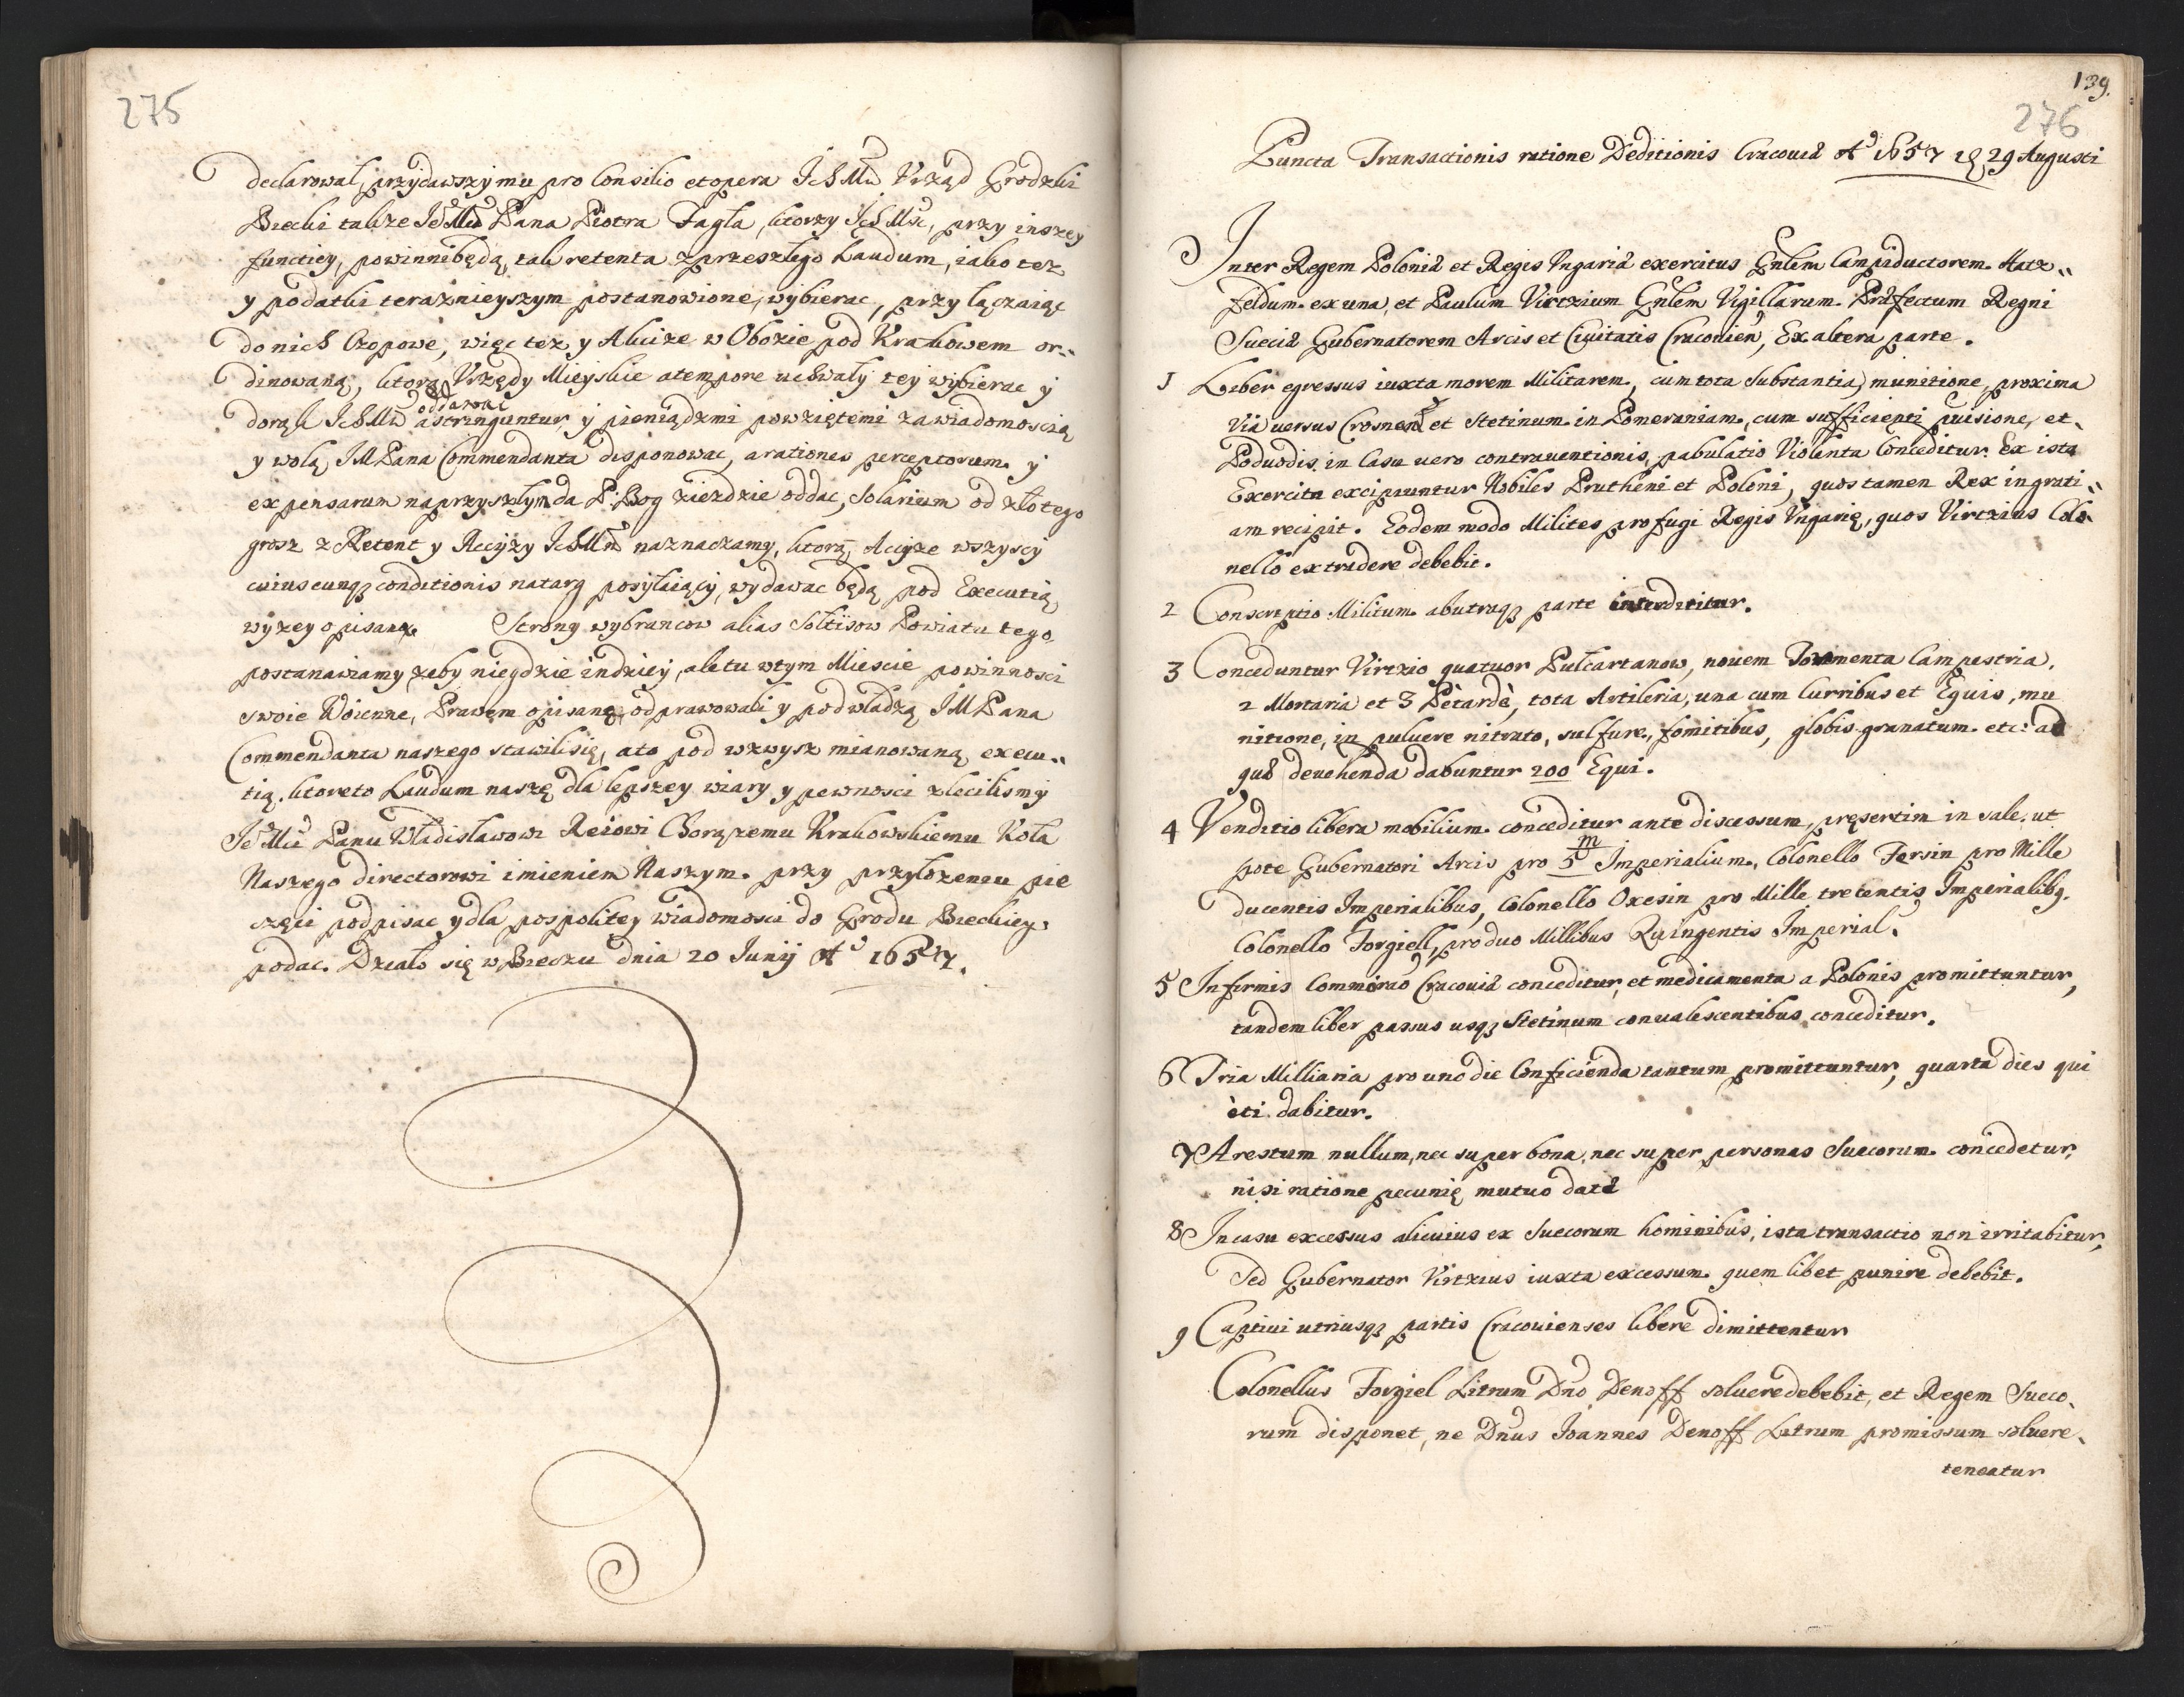 275
declarowal, przydawszy mu pro Consilio et opera IchMciow Vrząd Grodzki
Biecki takze JeoMci Pana Piotra Fagla, ktorzy IchMsc, przy inszey
functiey, powinni będą, tak retenta z przeszłego Laudum, iako tez
y podatki teraznieyszym postanowione, wybierac, przyłączaiąc
do nich Czopowe, więc tez y Akcize w Obozie pod Krakowem or„
dinowaną, ktorą Vrzędy Mieyskie a tempore uchwały tey wybierac y
oddawac
do rąk IchMciow astringuntur, y pieniądzmi powziętemi za wiadomoscią
y wolą JM Pana Commendanta disponowac, a rationes perceptorum y
expensarum na przyszłym da P: Bog zieździe oddac, Solarium od złotego
grosz z Retent y Accyzy IchMciow naznaczamy, ktorą Accyze wszyscy
cuiuscunq3 conditionis na targ posyłaiący, wydawac będą pod Executią
wyzey opisaną. Strony wybrancow alias Sołtisow Powiatu tego
postanawiamy zeby nie gdzie indziey, ale tu w tym Miescie powinnosci
swoie Woienne, Prawem opisane, odprawowali y pod władzą JM Pana
Commendanta naszego stawili się, a to pod wzwysz mianowaną execu„
tią. ktore to Laudum nasze dla lepszey wiary y pewnosci zlecilismy
JeoMci Panu Władisławowi Reiowi Chorązemu Krakowskiemu Koła
Naszego directorowi imieniem Naszym. przy przyłozeniu pie
częci podpisac y dla pospolitey wiadomosci do Grodu Bieckiey
podac. Działo się w Bieczu dnia 20 Junij Ao 1657.
139.
276
Puncta Transactionis ratione Deditionis Cracouiæ Ao 1657 29 Augusti
Inter Regem Poloniæ et Regis Vngariæ exercitus Gnlem Campiductorem. Hatz„
feldum. ex una, et Paulum Virtzium Gnlem Vigillarum. Præfectum Regni
Sueciæ Gubernatorem Arcis et Ciuitatis Cracouien, Ex altera parte.
1 Liber egressus iuxta morem Militarem, cum tota Substantia, munitione, proxima
via uersus Crosnen et Stetinum in Pomeraniam, cum sufficienti puisione, et
Poduodis, in Casu uero contrauentionis, pabulatio Violenta Conceditur. Ex ista
Exercitu excipiuntur Nobiles Prutheni et Poloni, quos tamen Rex in grati„
am recipit. Eodem modo Milites profugi Regis Vngarię, quos Virtzius Colo
nello extradere debebit.
2 Conscriptio Militum ab utraq3 parte interdicitur.
3 Conceduntur Virtzio quatuor Pułcartanow, nouem Tormenta Campestria,
2 Mortaria et 3 Pètardè, tota Artileria, una cum Curribus et Equis, mu
nitione, in puluere nitrato, sulfure, fomitibus, globis granatum. etc: ad
quæ deuehenda dabuntur 200 Equi.
4 Venditio libera mobilium conceditur ante discessum, pręsertim in sale. ut
pote Gubernatori Arcis pro 5 m Imperialium, Colonello Fersin pro Mille
ducentis Imperialibus, Colonello Oxesin pro Mille trecentis Imperialib9.
Colonello Forgiell, pro duo Millibus Quingentis Imperial.
5 Infirmis Commorao Cracouiæ conceditur, et medicamenta a Polonis promittuntur,
tandem liber passus usq3 Stetinum conualescentibus conceditur.
6 Tria Milliaria pro uno die Conficienda tantum promittuntur, quarta dies qui
èti dabitur.
7 Arestum nullum, nec super bona, nec super personas Suecorum concedetur,
nisi ratione pecunię mutuo datæ
8 In casu excessus alicuius ex Suecorum hominibus, ista transactio non irritabitur,
Sed Gubernator Virtzius iuxta excessum. quem libet punire debebit.
9 Captiui utriusq3 partis Cracouienses libere dimittentur
Colonellus Forgiel Litrum Dno Denoff soluere debebit, et Regem Sueco,
rum disponet, ne Dnus Joannes Denoff Litrum promissum soluere
teneatur